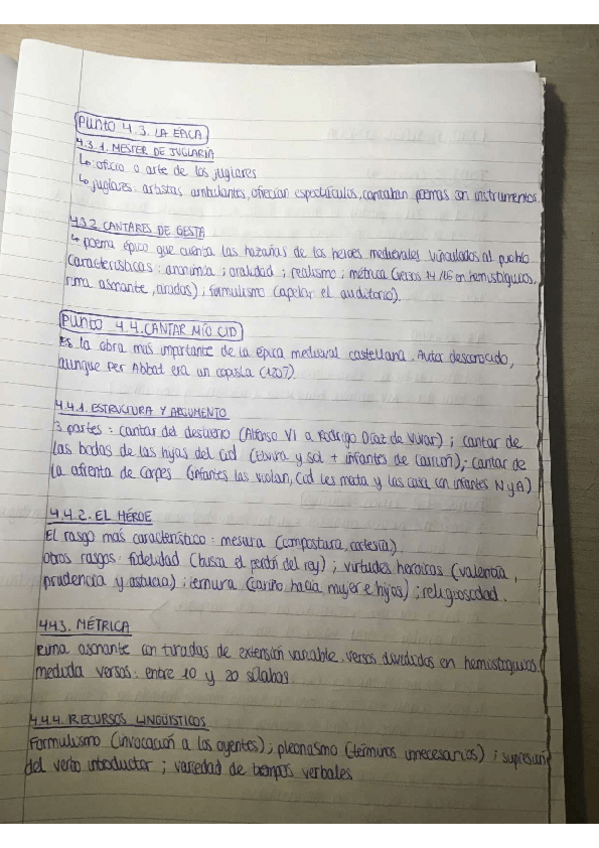 Punto 4.3. LA ÉPICA
4.3.1. MESTER DE JUGLARÍA
↳ oficio o arte de los juglares
↳ juglares: artistas ambulantes, ofrecían espectáculos, cantaban poemas con instrumentos.
4.3.2. CANTARES DE GESTA
↳ poema épico que cuenta las hazañas de los héroes medievales vinculados al pueblo
Características: anonimia; oralidad; realismo; métrica (versos 14/16 en hemistiquios,
rima asonante, tiradas); formulismo (apelar el auditorio).
Punto 4.4. CANTAR MÍO CID
Es la obra más importante de la épica medieval castellana. Autor desconocido,
aunque Per Abbat era un copista (1207).
4.4.1. ESTRUCTURA Y ARGUMENTO
3 partes: cantar del destierro (Alfonso VI a Rodrigo Díaz de Vivar); cantar de
las bodas de las hijas del Cid (Elvira y Sol + infantes de Carrión); cantar de
la afrenta de Corpes (infantes las violan, Cid les mata y las casa con infantes N y A)
4.4.2. EL HÉROE
El rasgo más característico: mesura (compostura, cortesía)
Otros rasgos: fidelidad (busca el perdón del rey); virtudes heroicas (valencia,
prudencia y astucia); ternura (cariño hacia mujer e hijos); religiosidad.
4.4.3. MÉTRICA
Rima asonante con tiradas de extensión variable. versos divididos en hemistiquios
medida versos: entre 10 y 20 sílabas
4.4.4. RECURSOS LINGÜÍSTICOS
Formulismo (invocación a los oyentes); pleonasmo (términos innecesarios); supresión
del verbo introductor; variedad de tiempos verbales